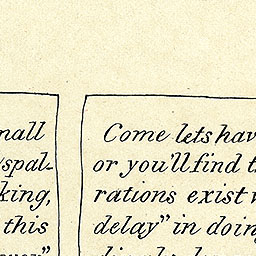 mall
spal-
king,
this
Come lets hav
or you'll find t
rations exist
delay" in doin